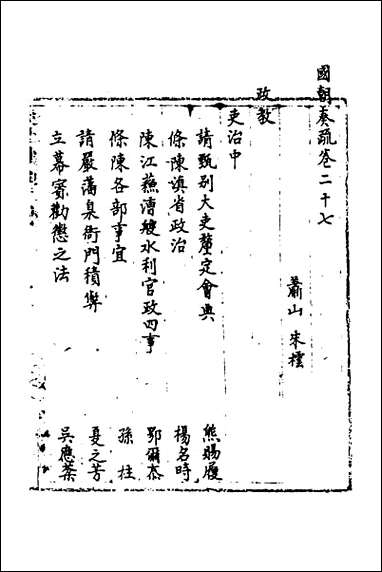 國朝奏疏卷二十七
蕭山 朱橒
政教
吏治中
請甄別大吏釐定會典 熊賜履
條陳滇省政治 楊名時
陳江蘇漕糧水利官政四事 鄂爾泰
條陳各部事宜 孫柱
請嚴藩臬衙門積弊 夏之芳
立幕賓勸懲之法 吳應棻